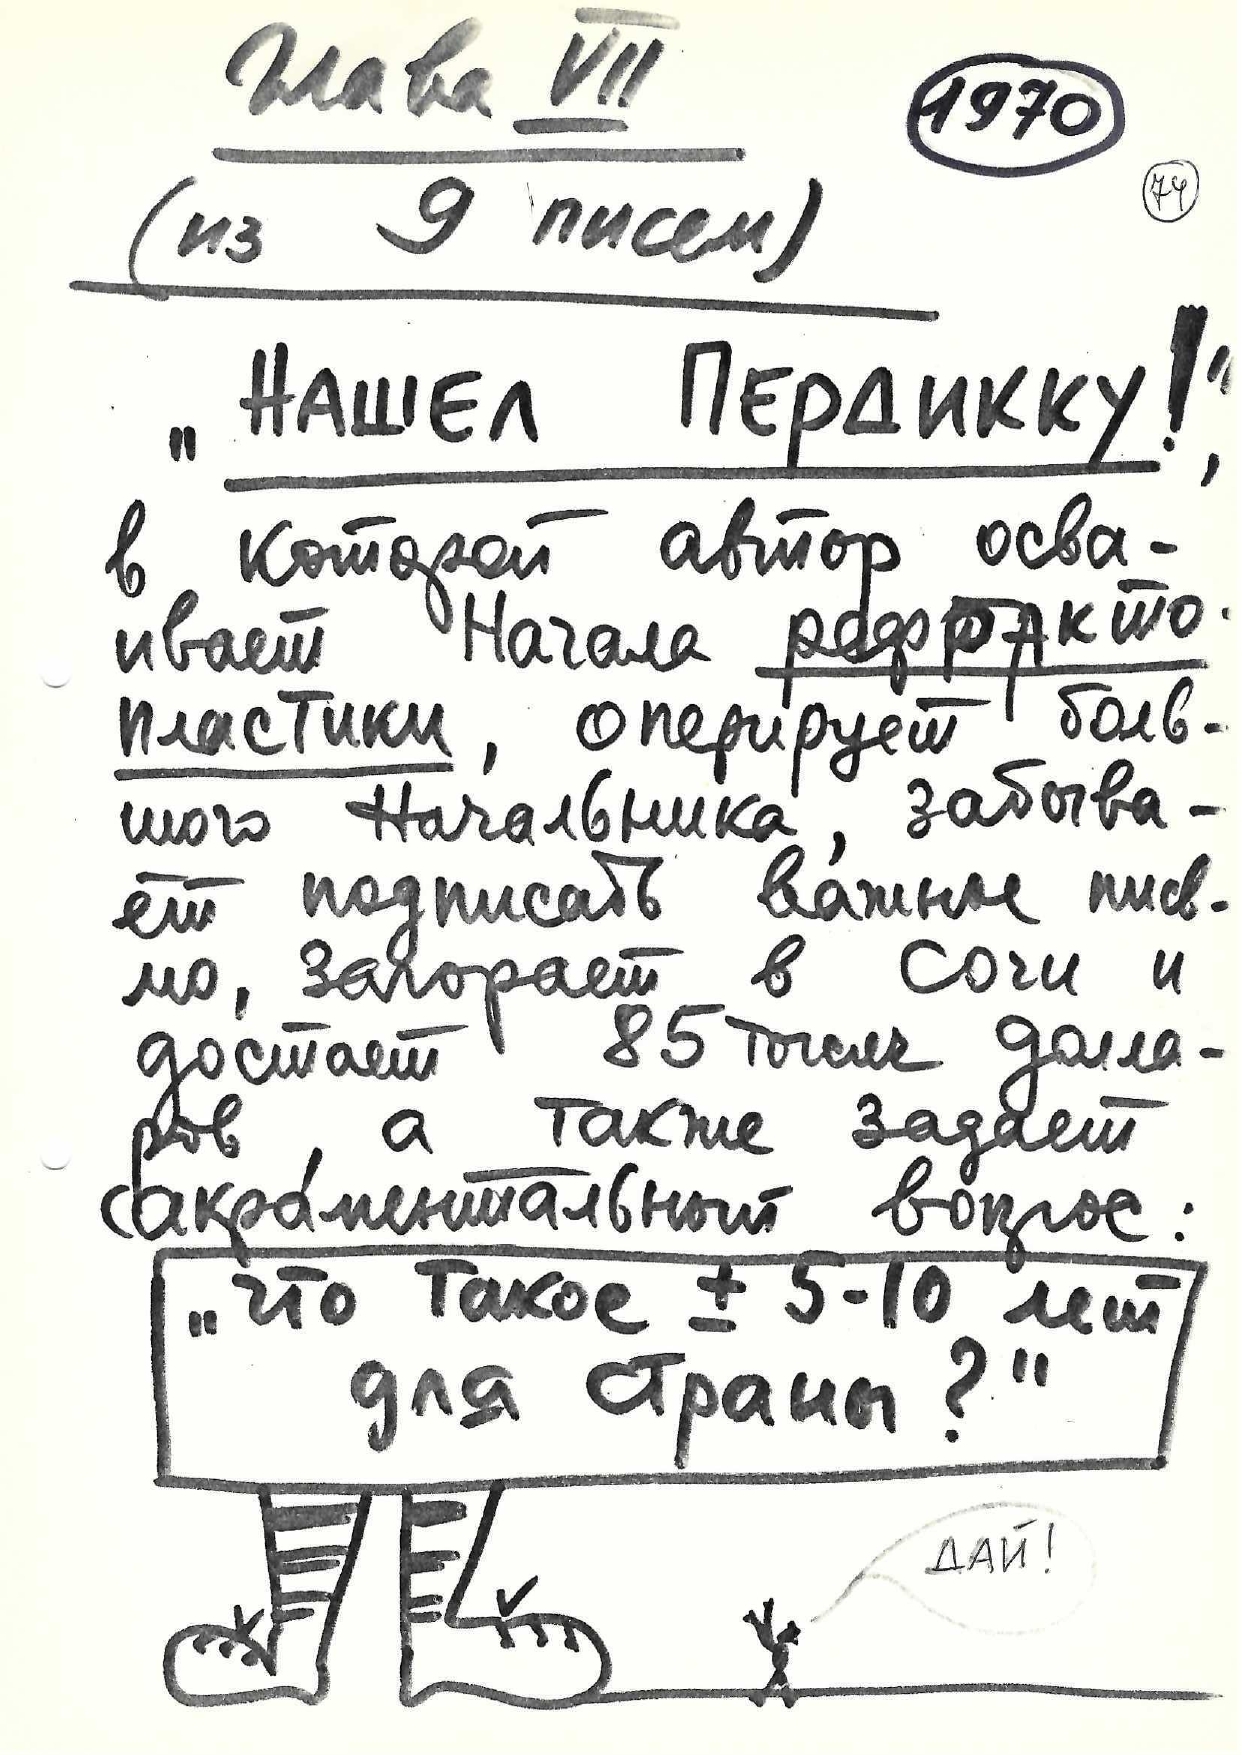 Глава VII
1970
74
(из 9 писем)
„НАШЕЛ ПЕРДИККУ!",
в которой автор осва-
ивает Начала рефракто-
пластики, оперирует боль-
шого Начальника, забыва-
ет подписать важное пись-
мо, загорает в Сочи и
достает 85 тысяч долла-
ров, а также задает
сакраментальный вопрос:
„что такое ± 5-10 лет
для страны?"
ДАЙ!